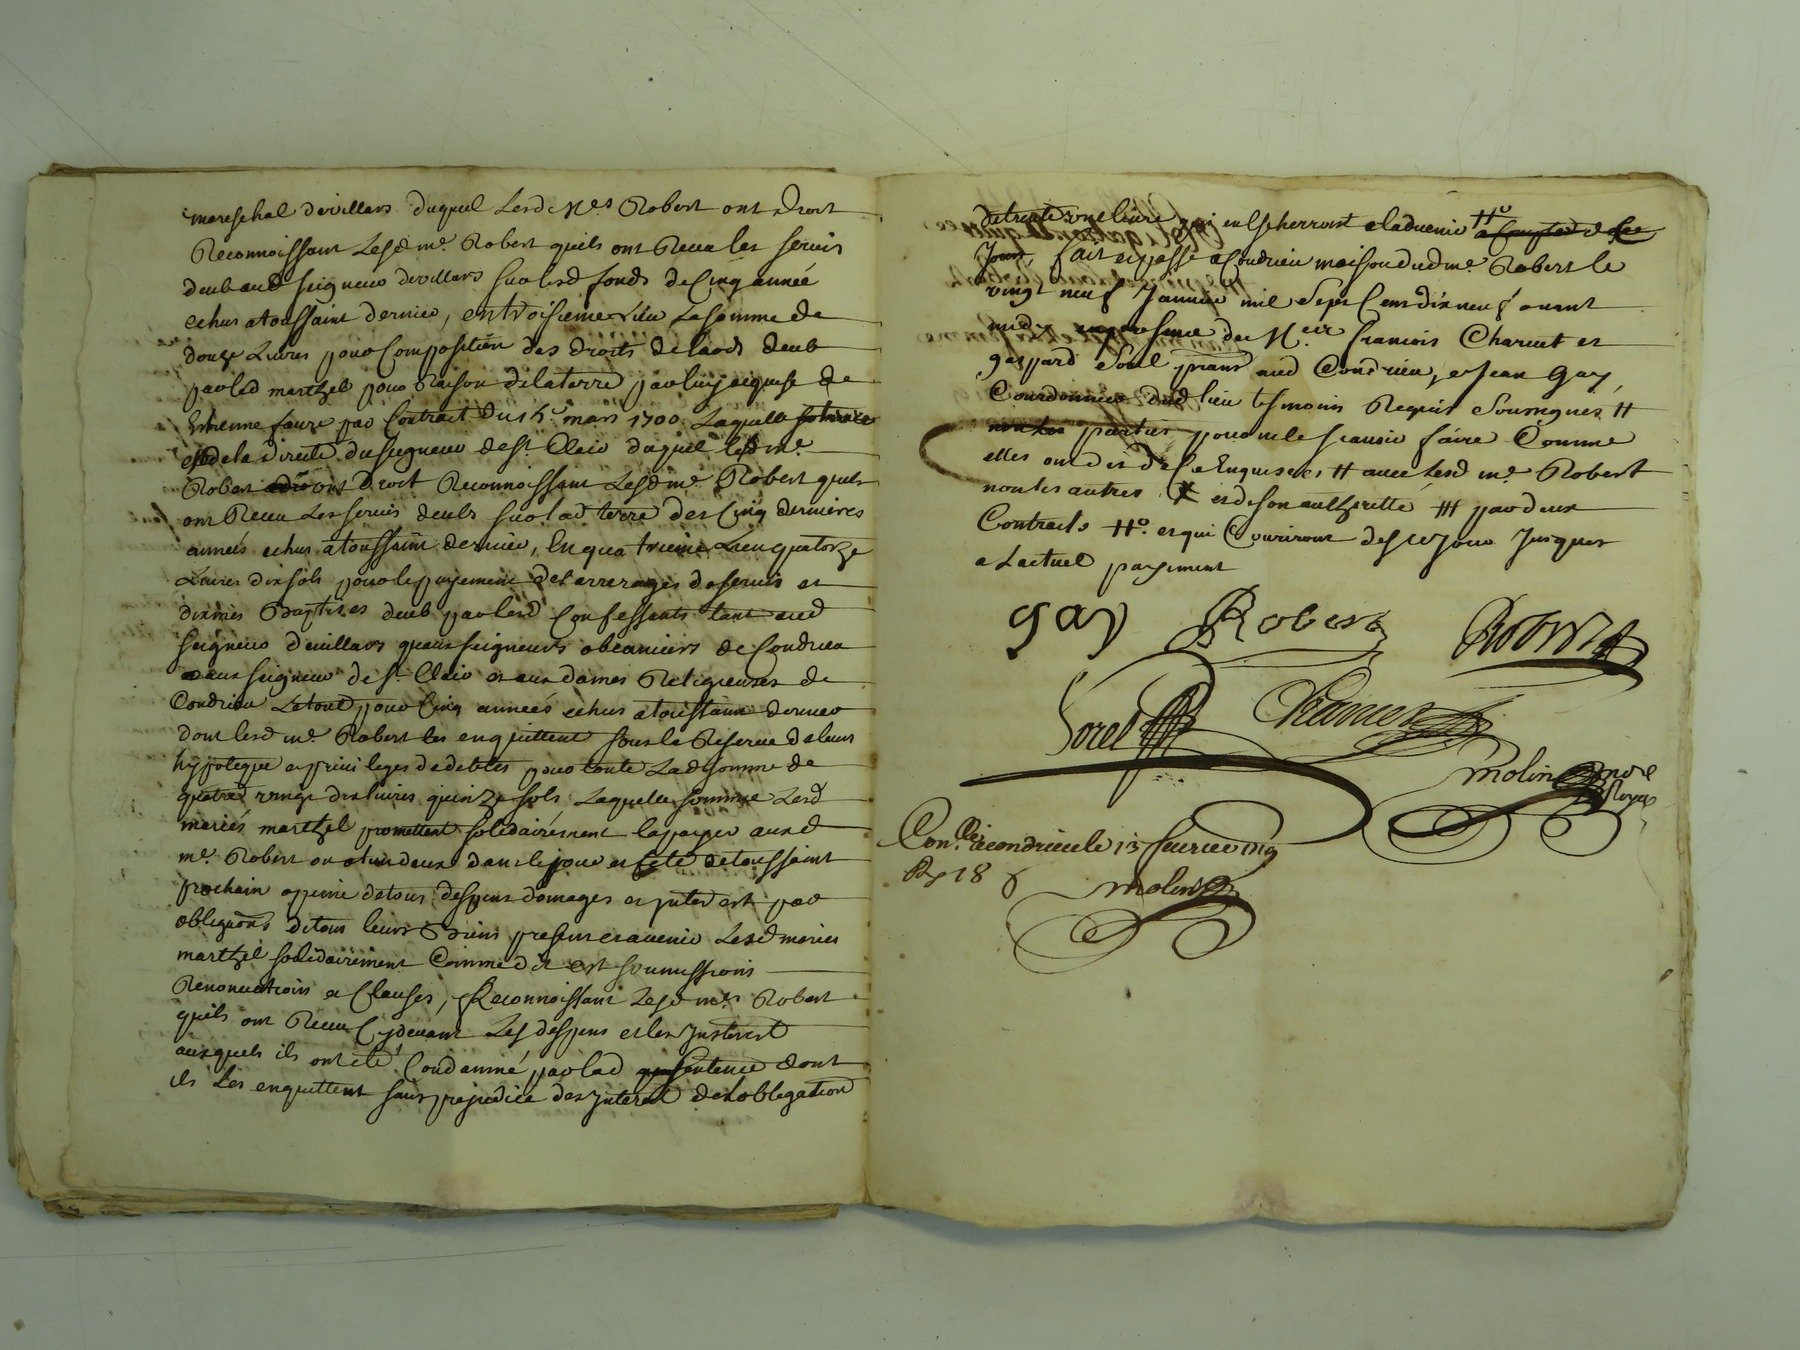 mareschal devillars duquel Lesd mes Robert ont droit
Reconnoissant Lesd me. Robert quils ont Receu les servis
deub aud seigneur devillars sur lesd fonds de Cinq année
echus atoussaint dernier, entroisieme Lieu La somme de
douze Livres pour Composition des droits de laods deub
parled martzel pour Raison delaterre parluy acquise de
Estienne faure par Contract du 15e mars 1700 Laquelle
est dela directe duseigneur de st Clair duquel lesd me.
Robert ont droit Reconnoissant Lesd me. Robert quils
ont Receu Les servis deubs sur lad terre des Cinq dernieres
années echus atoussaint dernier, En quatrieme Lieu quatorze
Livres dix sols pour le payement des arrerages de servis et
deub par lesd Confessants tant aud
seigneur devillars quaux seigneurs obeanciers de Condrieu
aux seigneur de st Clair et aux dames Religieuses de
Condrieu Le tout pour Cinq années echus atoussaint dernier
dont lesd me. Robert les enquittent sous la Reserve de leurs
hypoteque et privileges de debtes pour toute Lad somme de
quatre vingt dix livres quinze sols Laquelle somme Lesd
mariés martzel promettent solidairement la payer ausd
me. Robert ou a lun deux dans le jour et fete de toussaint
prochain a peine de tous despens domages et interest par
obligaons de tous leurs Biens presens et avenir Lesd maries
martzel solidairement Comme dit est soumissions
Renonciations et Clauses, Reconnoissant Lesd mes Robert
quils ont Receu Cydevant Les despens et les Interest
ausquels ils ont eté Condamné par lad sentence dont
ils Les enquittent sans prejudice des interest de lobligation
de trente une livre qui eulscherront a ladvenir #o a Compter de ce
Jour, fait et passé a Condrieu maison dud me. Robert le
vingt neuf Janvier mil Sept Cens dix neuf avant
midy en presence de François et
gaspard aud Condrieu, et Jean Gay
Courdonnier dud lieu tesmoins Requis Soussignez #
parties pour ne le scavoir faire Comme
elles ont dit de ce Enquises # avec Lesd me. Robert
non les autres X et de son autheritte ## par deux
Contracts #o. et qui Couriront des ce jour Jusques
a Lactuel payement
gay Robert Robert
Sorel
molin nore Royal
Con.lle a condrieu le 13 fevrier 1719
R 18 s
molin